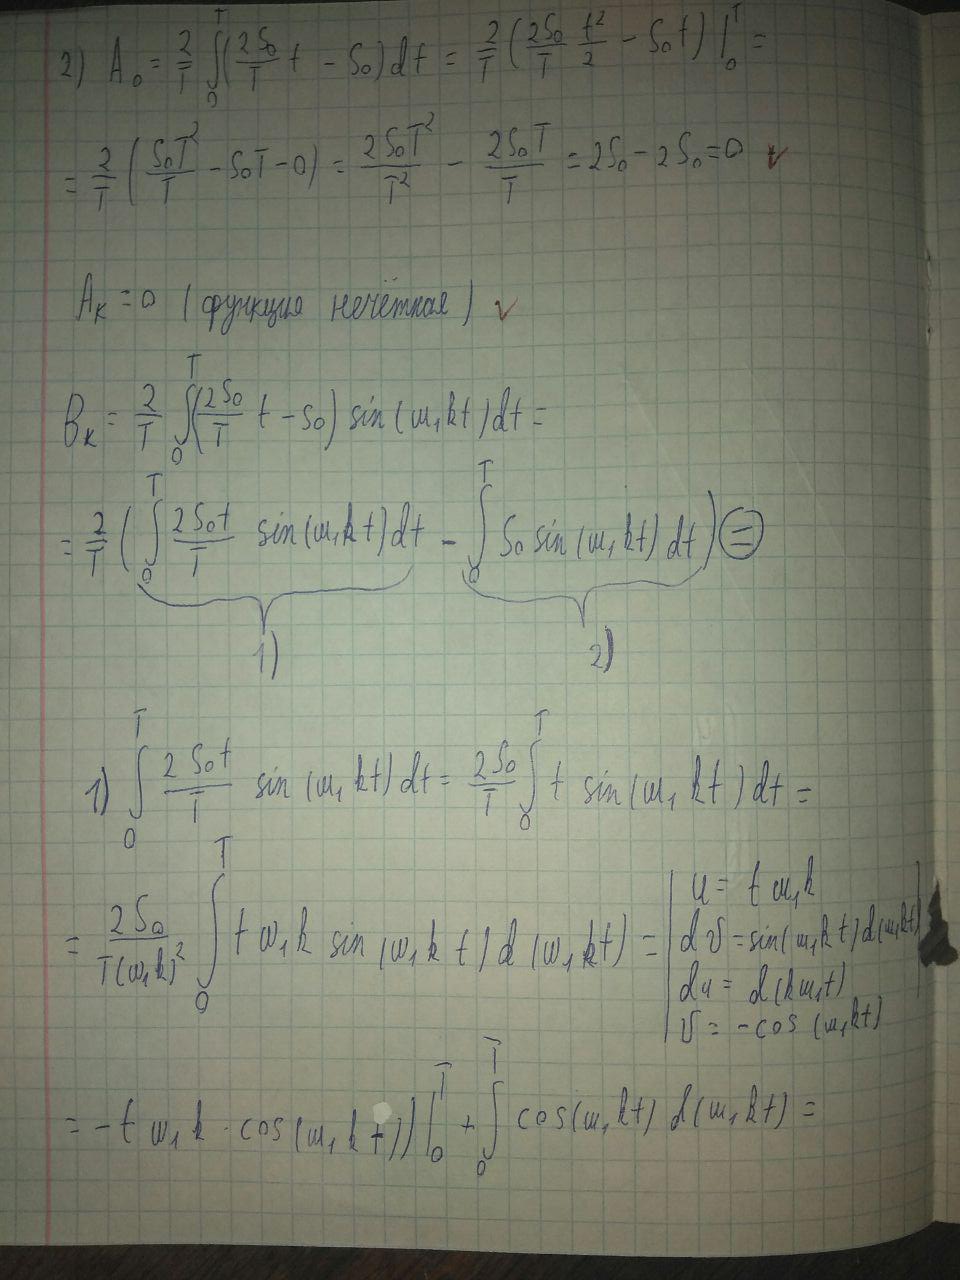 2) A₀ = 2/T ∫₀ᵀ (2S₀/T t - S₀) dt = 2/T (2S₀/T t²/2 - S₀t) |₀ᵀ =
= 2/T (S₀T²/T - S₀T - 0) = 2S₀T²/T² - 2S₀T/T = 2S₀ - 2S₀ = 0 ✓
Aₖ = 0 (функция нечётная) ✓
Bₖ = 2/T ∫₀ᵀ (2S₀/T t - S₀) sin(ω₁kt) dt =
= 2/T (∫₀ᵀ 2S₀t/T sin(ω₁kt) dt - ∫₀ᵀ S₀ sin(ω₁kt) dt) ⊜
1) 2)
1) ∫₀ᵀ 2S₀t/T sin(ω₁kt) dt = 2S₀/T ∫₀ᵀ t sin(ω₁kt) dt =
= 2S₀/T(ω₁k)² ∫₀ᵀ t ω₁k sin(ω₁kt) d(ω₁kt) = | u = t ω₁k
dv = sin(ω₁kt) d(ω₁kt)
du = d(kω₁t)
v = -cos(ω₁kt) |
= -t ω₁k · cos(ω₁kt)) |₀ᵀ + ∫₀ᵀ cos(ω₁kt) d(ω₁kt) =